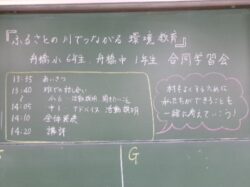 『ふるさとの川でつながる環境教育』
舟橋小6年生、舟橋中1年生 合同学習会
13:35 あいさつ
13:40 班での話し合い
小6…活動説明
14:05 中1…アドバイス 活動説明
14:10 全体発表
14:20 講評
村をよくするために
私たちができることを
一緒に考えていこう！
G